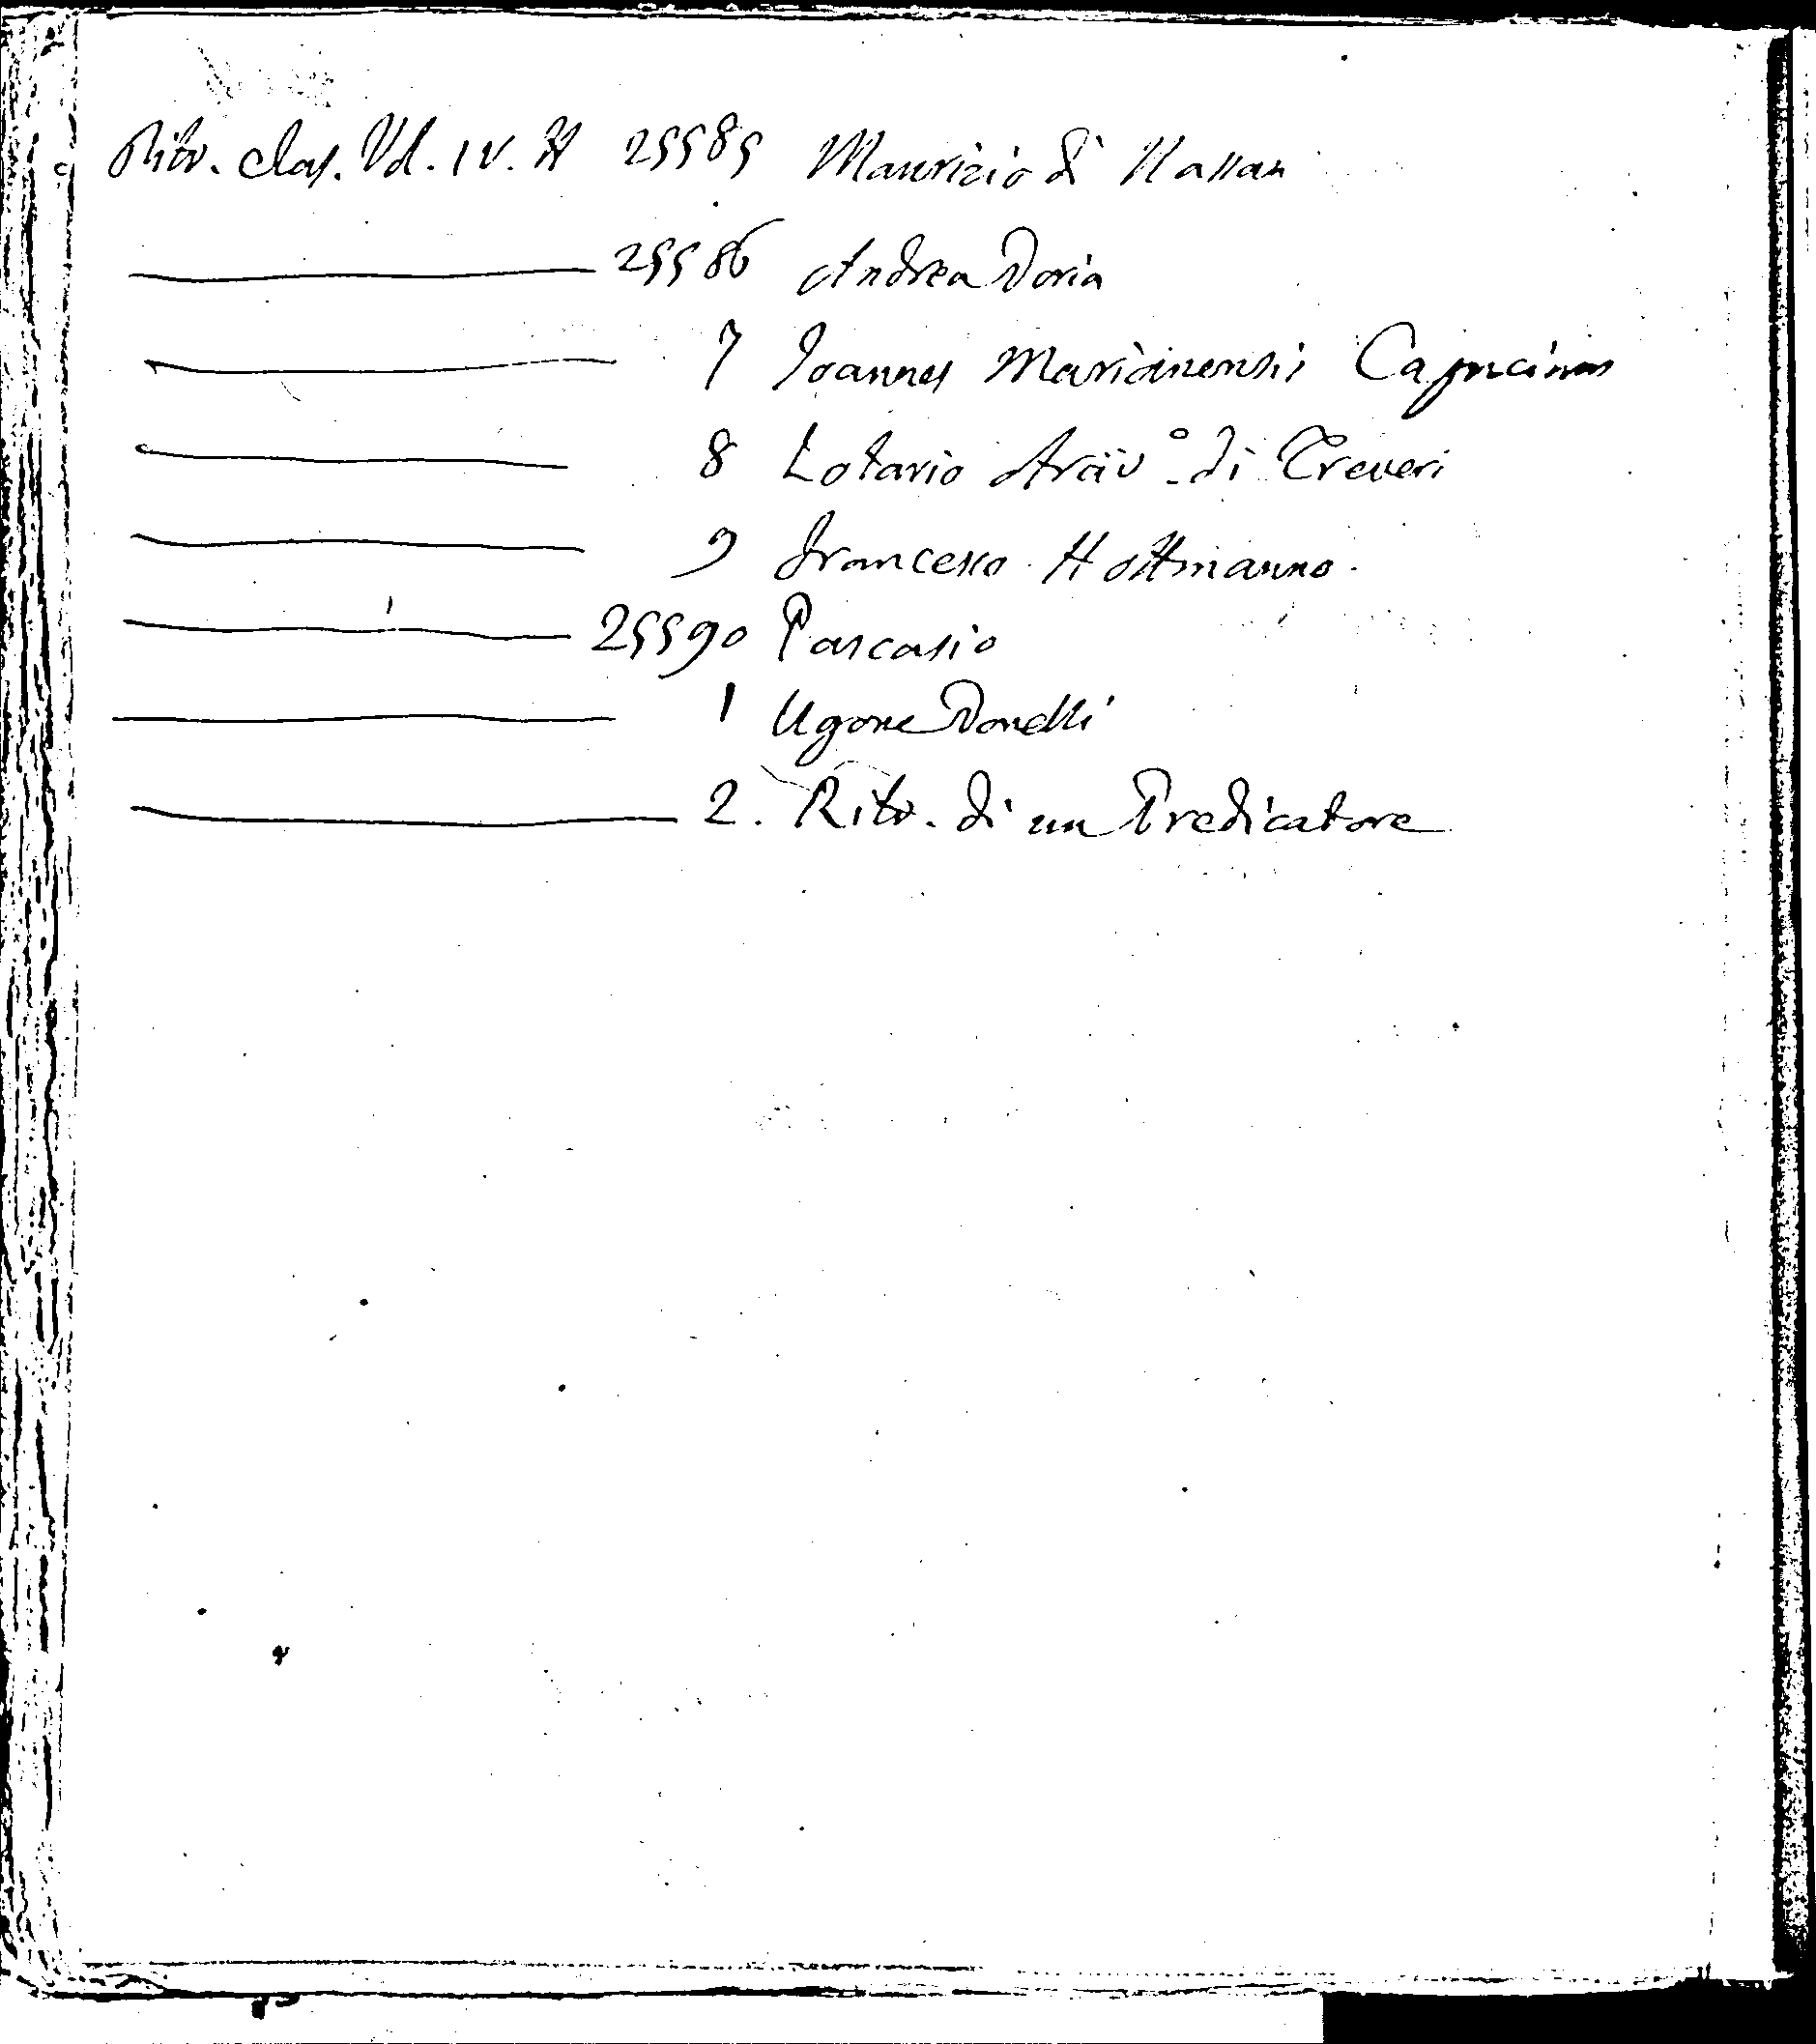 Ritr. clas. Vol. IV. N 25585 Maurizio di Nassau
25586 Andrea Doria
7 Ioannes Marianensis Capucinus
8 Lotario Arciv.o di Treveri
9 Francesco Hottmanno.
25590 Pascasio
1 Ugone Donelli
2. Ritr. di un Predicatore